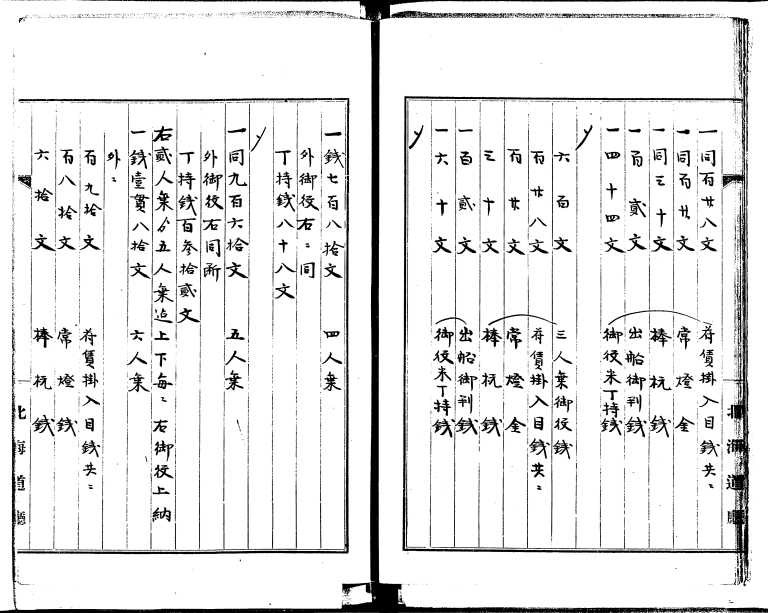 一同百廿八文 存賃掛入目錢共ニ
一同百廿文 常燈金
一同三十文 棒杭錢
一百貳文 出船御判錢
一四十四文 御役米丁持錢
〆
六百文 三人乗御役錢
百廿八文 存賃掛入目錢共ニ
百廿文 常燈金
三十文 棒杭錢
一百貳文 出船御判錢
一六十文 御役米丁持錢
〆
北海道廳
一錢七百八拾文 四人乗
外御役右ニ同
丁持錢八十八文
〆
一同九百六拾文 五人乗
外御役右同断
丁持錢百参拾貳文
右貳人乗ゟ五人乗迄上下毎ニ右御役上納
一錢壹貫八拾文 六人乗
外ニ
百九拾文 存賃掛入目錢共ニ
百八拾文 常燈錢
六拾文 棒杭錢
北海道廳